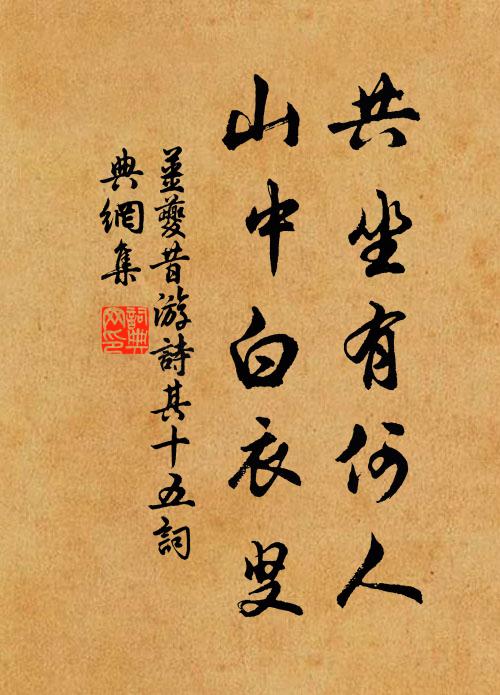 共坐有何人
山中白衣叟
姜夔昔游詩其十五詞
典網集
詞典網印